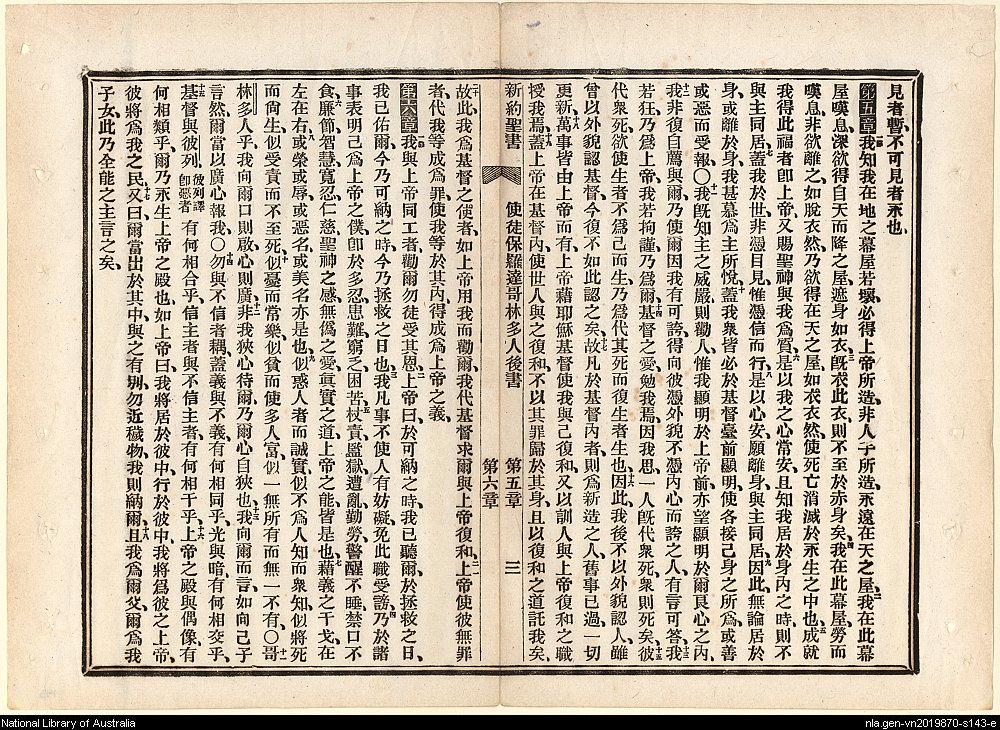 見者暫不可見者永也
第五章我知我在地之幕屋若壞必得上帝所造非人手所造永遠在天之屋二我在此幕
屋嘆息深欲得自天而降之屋遮身如衣三旣衣此衣則不至於赤身矣四我在此幕屋勞而
嘆息非欲離之如脫衣然乃欲得在天之屋如衣衣然使死亡消滅於永生之中也五成就
我得此福者卽上帝又賜聖神與我爲質六是以我之心常安且知我居於身內之時則不
與主同居七蓋我於世非憑目見惟憑信而行八是以心安願離身與主同居九因此無論居於
身或離於身我甚慕爲主所悅十蓋我衆皆必於基督臺前顯明使各接己身之所爲或善
或惡而受報〇十一我旣知主之威嚴則勸人惟我顯明於上帝前亦望顯明於爾良心之內
十二我非復自薦與爾乃使爾因我有可誇得向彼憑外貌不憑內心而誇之人有言可答十三我
若狂乃爲上帝我若拘謹乃爲爾十四基督之愛勉我焉因我思一人旣代衆死衆則死矣十五彼
代衆死欲使生者不爲己而生乃爲代其死而復生者生也十六因此我後不以外貌認人雖
曾以外貌認基督今復不如此認之矣十七故凡於基督內者則爲新造之人舊事已過一切
更新十八萬事皆由上帝而有上帝藉耶穌基督使我與己復和又以訓人與上帝復和之職
授我焉十九蓋上帝在基督內使世人與之復和不以其罪歸於其身且以復和之道託我矣
新約聖書 使徒保羅達哥林多人後書 第五章 第六章 三
二十故此我爲基督之使者如上帝用我而勸爾我代基督求爾與上帝復和二一上帝使彼無罪
者代我等成爲罪使我等於其內得成爲上帝之義
第六章我與上帝同工者勸爾勿徒受其恩二上帝曰於可納之時我已聽爾於拯救之日
我已佑爾今乃可納之時今乃拯救之日也三我凡事不使人有妨礙免此職受謗四乃於諸
事表明己爲上帝之僕卽於多忍患難窮乏困苦五杖責監獄遭亂勤勞警醒不睡禁口不
食六廉節智慧寬忍仁慈聖神之感無僞之愛七眞實之道上帝之能皆是也藉義之干戈在
左在右八或榮或辱或惡名或美名亦是也似惑人者而誠實九似不爲人知而衆知似將死
而尙生似受責而不至死十似憂而常樂似貧而使多人富似一無所有而無一不有〇十一哥
林多人乎我向爾口則啟心則廣十二非我狹心待爾乃爾心自狹也十三我向爾而言如向己子
言然爾當以廣心報我〇十四勿與不信者耦蓋義與不義有何相同乎光與暗有何相交乎
十五基督與彼列彼列譯卽惡者有何相合乎信主者與不信主者有何相干乎十六上帝之殿與偶像有
何相類乎爾乃永生上帝之殿也如上帝曰我將居於彼中行於彼中我將爲彼之上帝
彼將爲我之民十七又曰爾當出於其中與之有別勿近穢物我則納爾十八且我爲爾父爾爲我
子女此乃全能之主言之矣
National Library of Australia
nla.gen-vn2019870-s143-e